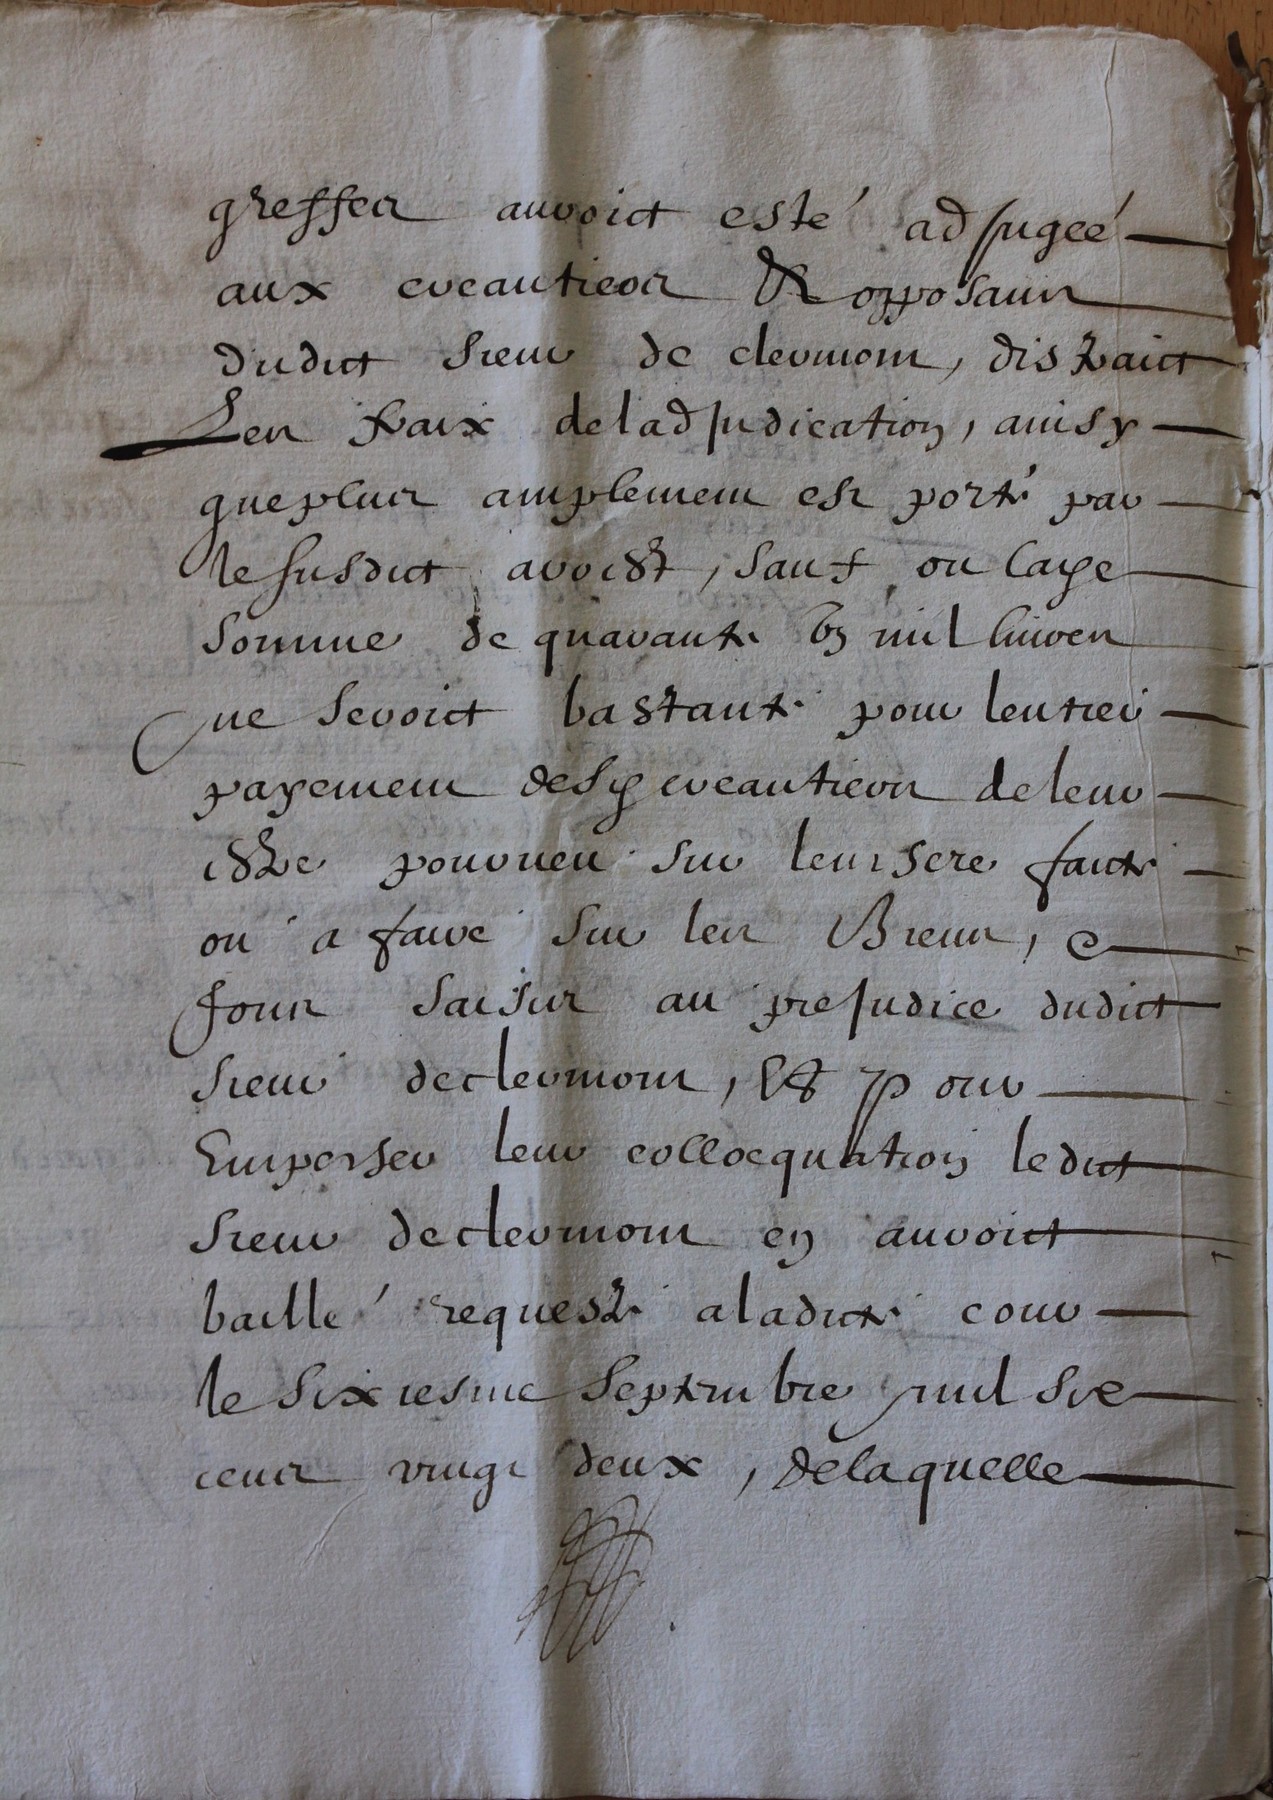 greffes auroict esté adjugée
aux creantiers & opposans
dudict sieur de clermont, distraict
les fraix de ladjudication, ainsy
que plus amplement est porté par
le susdict arrest, sauf ou lad
somme de quarante un mil livres
ne seroict bastante pour lentier
payement desd creantiers de leur
estre pourveu sur leurs faicte
ou a faire sur les Biens, e
Jouir saisir au prejudice dudict
sieur de clermont, Et pour
Emperser leur collocquation ledict
sieur de clermont en auroict
baillé requeste a ladicte cour
le sixiesme Septembre mil six
cens vingt deux, de laquelle